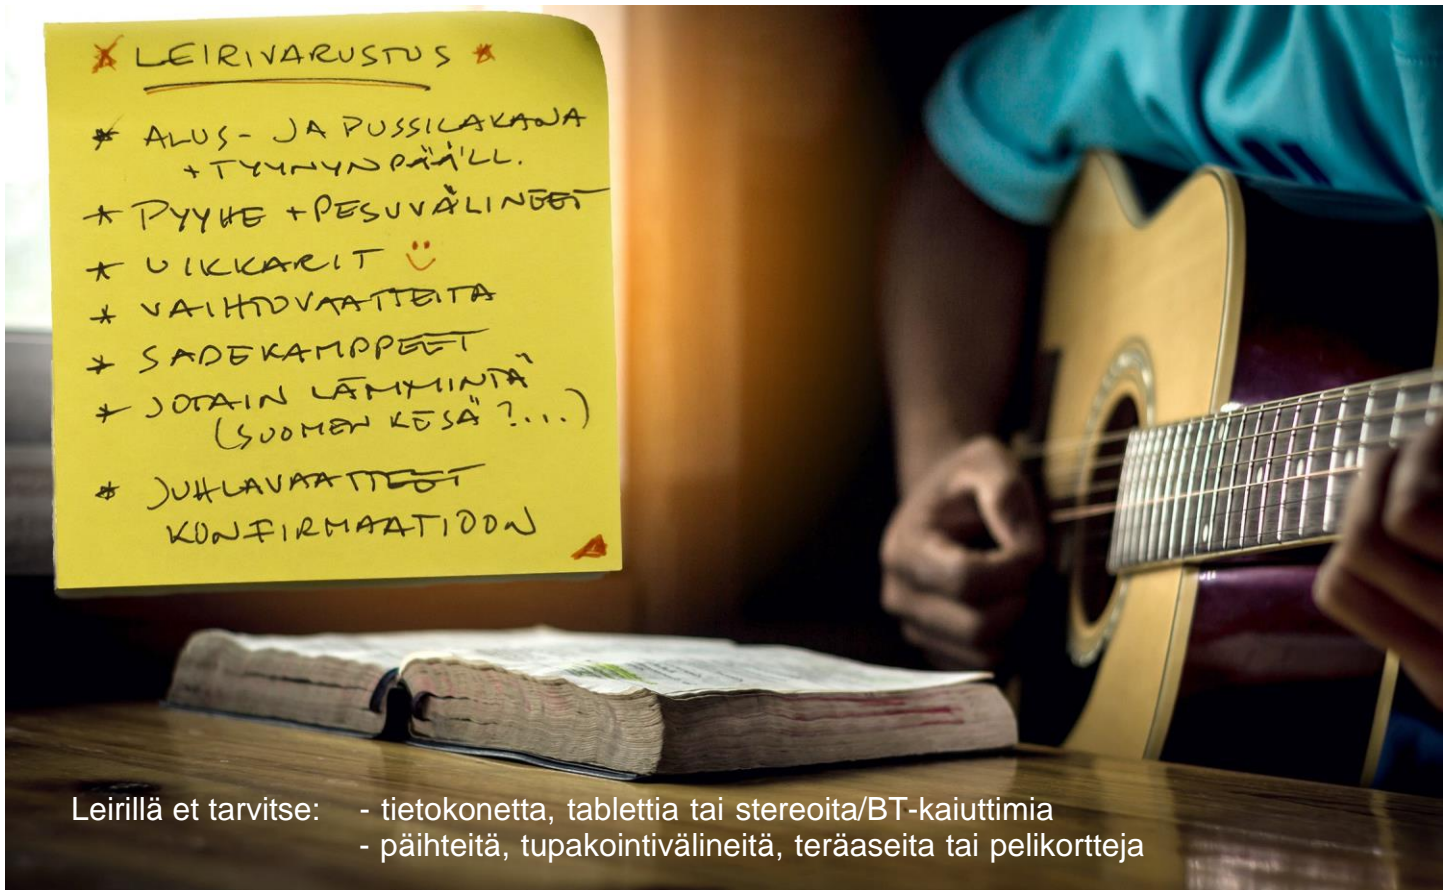 LEIRIVARUSTUS
* ALUS- JA PUSSILAKANA
+ TYYNYNPÄÄLL.
* PYYHE + PESUVÄLINEET
* UIKKARIT
* VAIHTOVAATTEITA
* SADEKAMPPEET
* JOTAIN LÄMMINTÄ
(SUOMEN KESÄ?...)
* JUHLAVAATTEET
KONFIRMAATIOON
Leirillä et tarvitse: - tietokonetta, tablettia tai stereoita/BT-kaiuttimia
- päihteitä, tupakointivälineitä, teräaseita tai pelikortteja